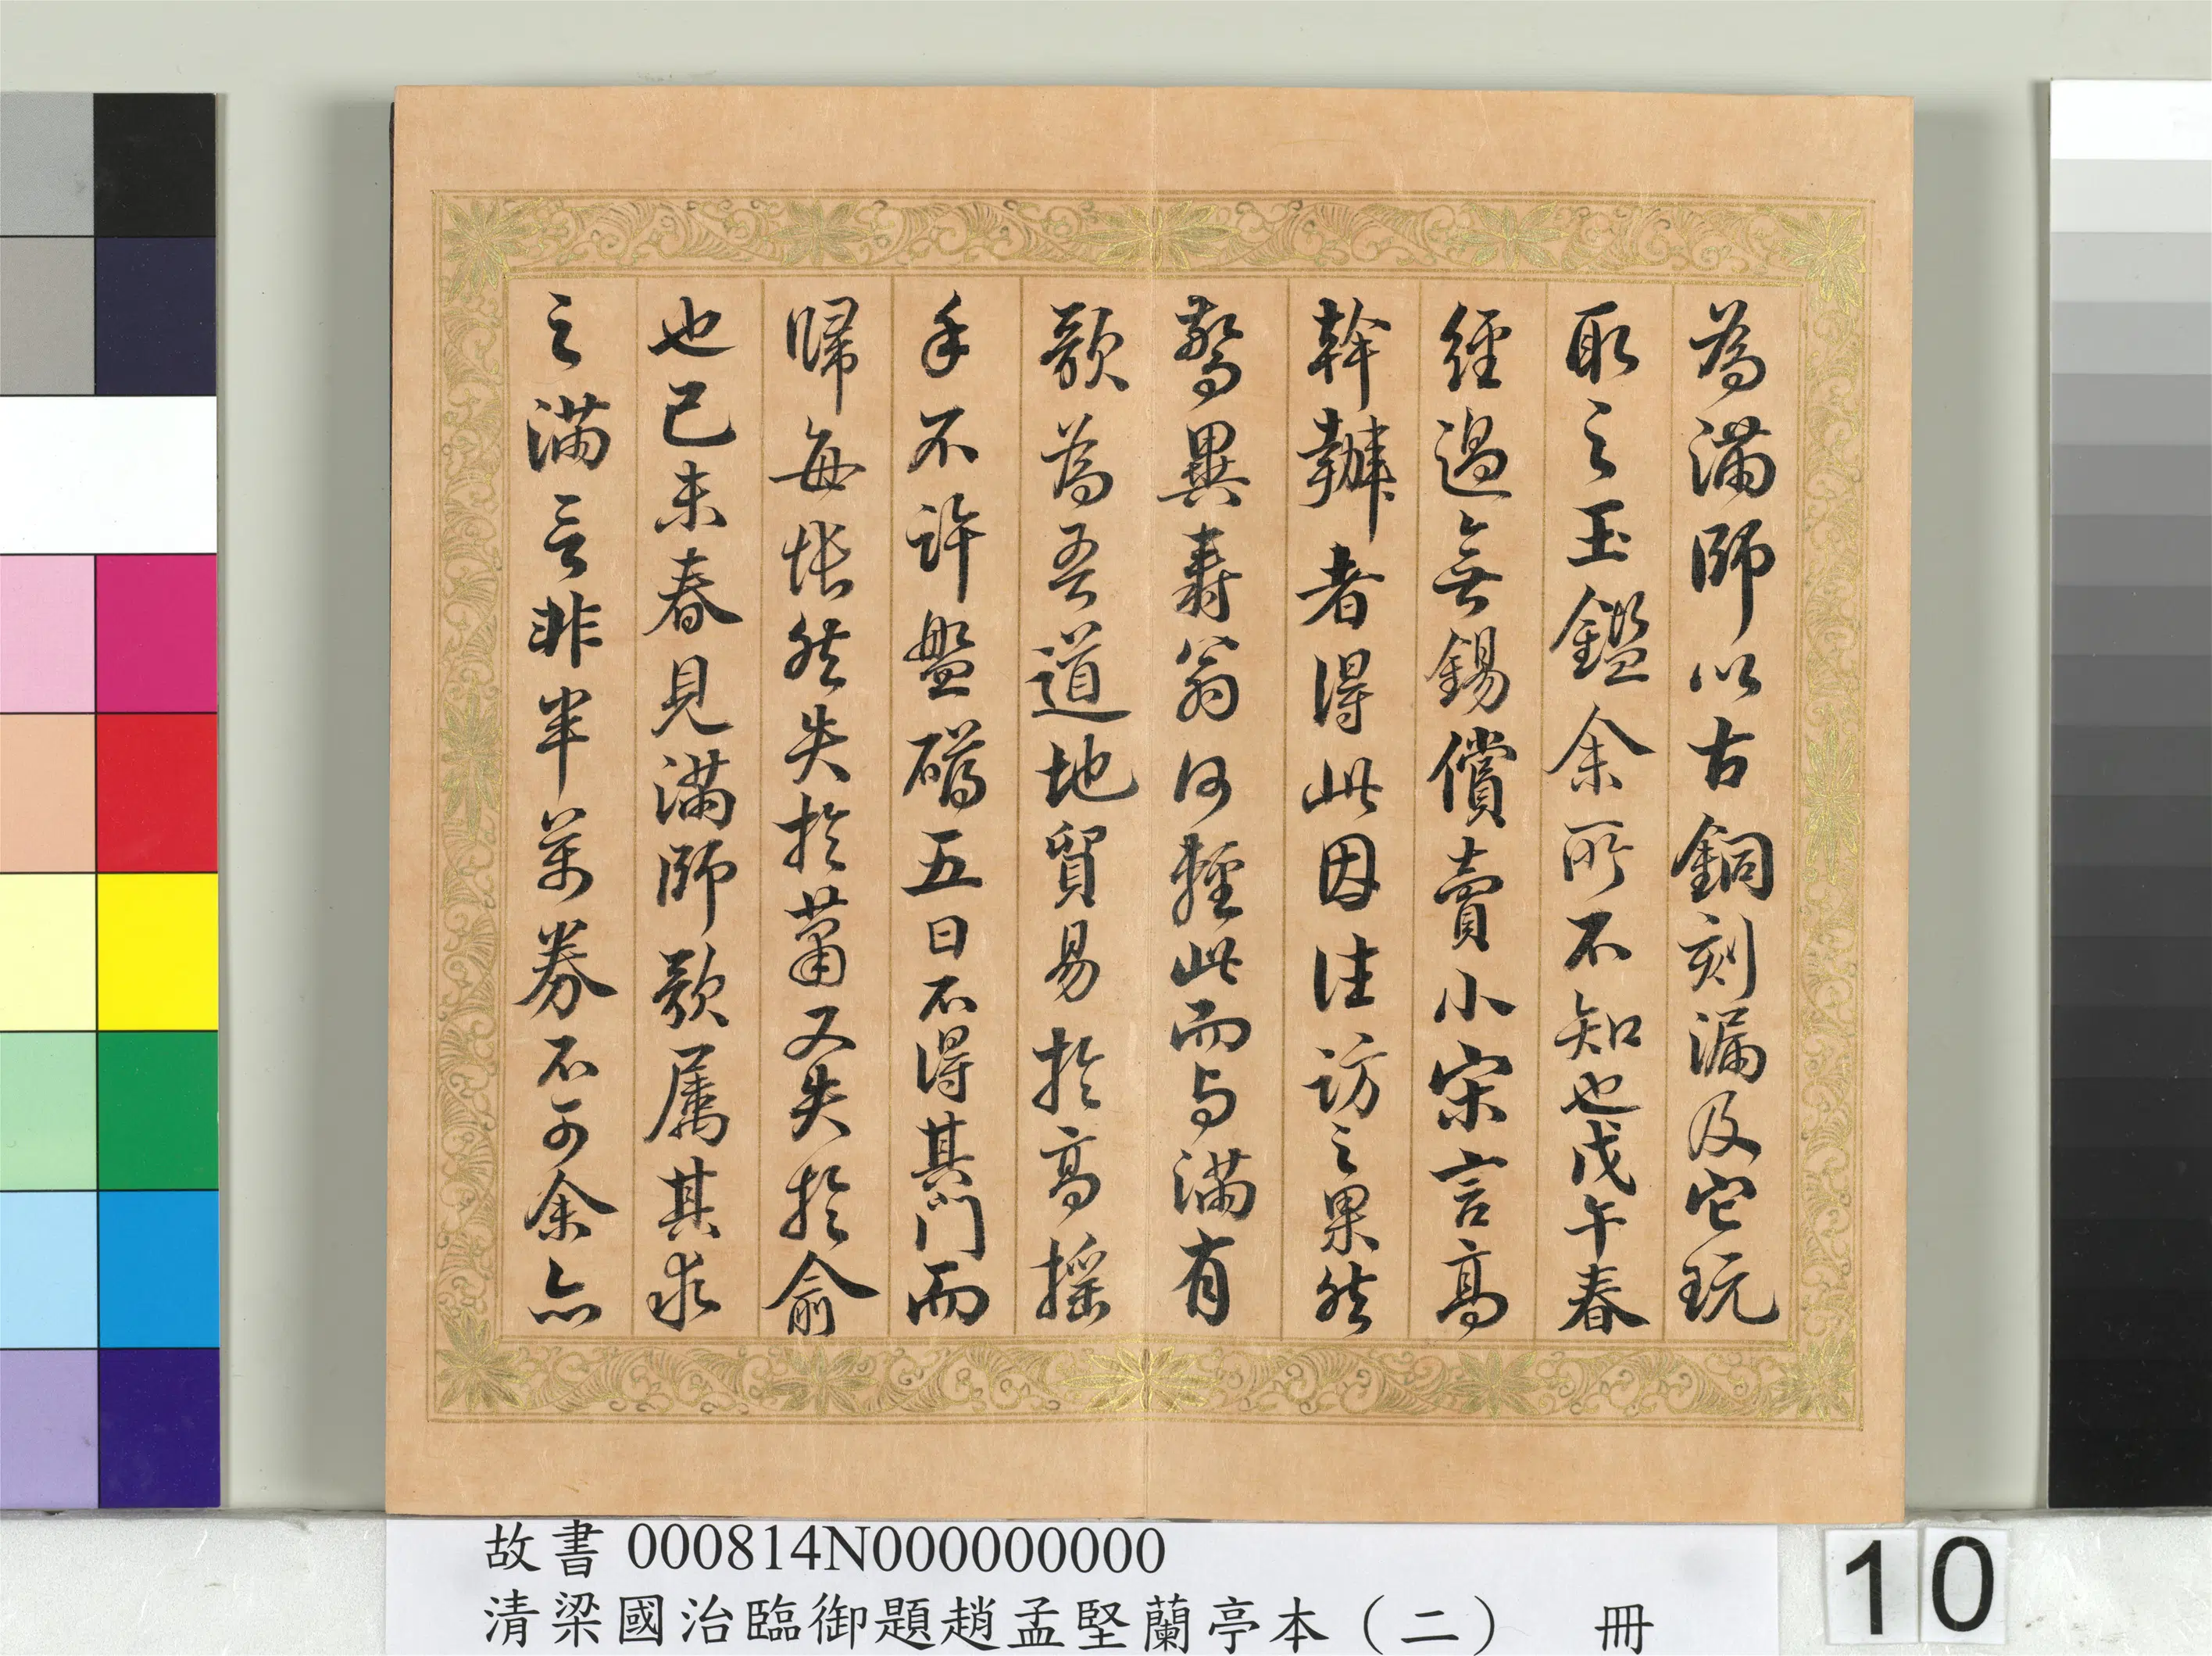 為滿師以古銅刻漏及它玩
取之玉鑑余所不知也戊午春
經過無錫償賣小宋言高
幹辦者得此因往訪之果然
驚異壽翁何輕此而与滿有
歉為吾道地貿易於高搖
手不許盤礴五日不得其門而
歸每悵然失於蕭又失於俞
也己未春見滿師歉属其求
之滿言非半萬券不可余亦
故書 000814N000000000
清梁國治臨御題趙孟堅蘭亭本（二） 冊
10